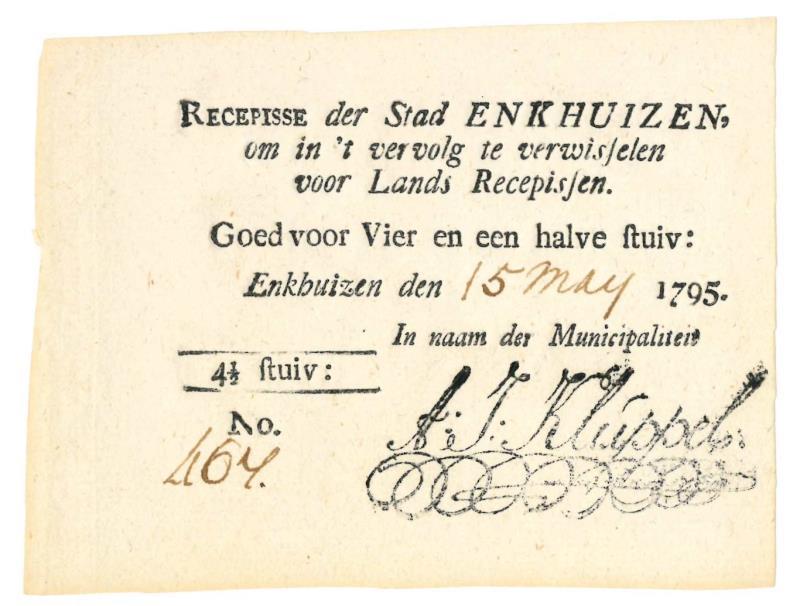 RECEPISSE der Stad ENKHUIZEN,
om in 't vervolg te verwisſelen
voor Lands Recepisſen.
Goed voor Vier en een halve ſtuiv:
Enkhuizen den 15 May 1795.
In naam der Municipaliteit
4½ ſtuiv:
No.
464.
A: J: Kluppel: